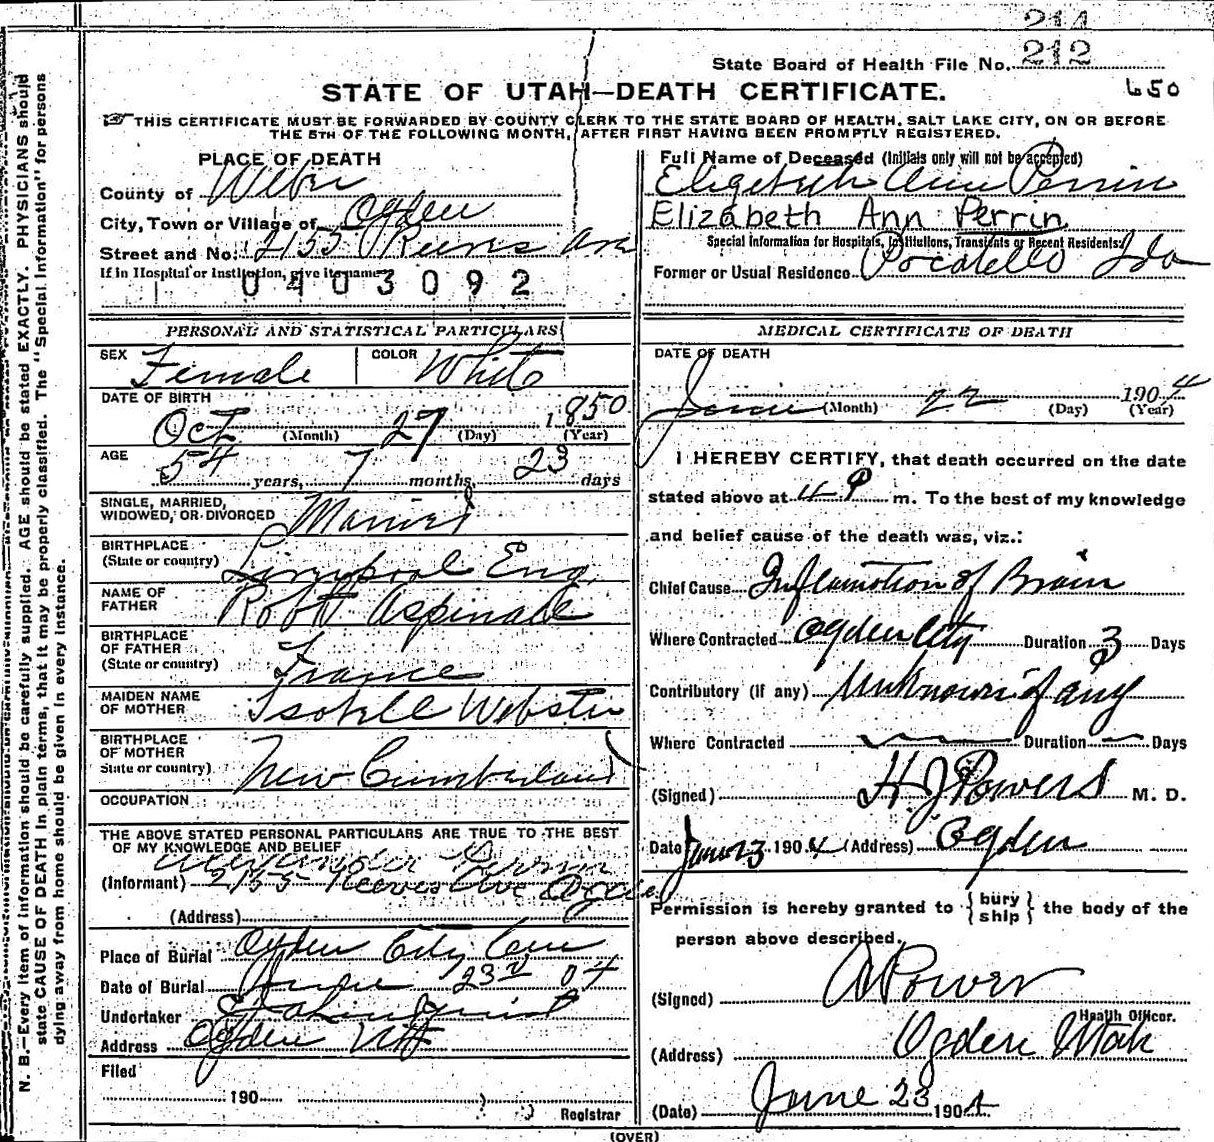 214
State Board of Health File No. 212
STATE OF UTAH—DEATH CERTIFICATE.
650
THIS CERTIFICATE MUST BE FORWARDED BY COUNTY CLERK TO THE STATE BOARD OF HEALTH, SALT LAKE CITY, ON OR BEFORE
THE 5TH OF THE FOLLOWING MONTH, AFTER FIRST HAVING BEEN PROMPTLY REGISTERED.
PLACE OF DEATH
County of Weber
City, Town or Village of Ogden
Street and No. 2155 Reeves Ave
If in Hospital or Institution, give its name
0403092
Full Name of Deceased (Initials only will not be accepted)
Elizabeth Ann Perrin
Elizabeth Ann Perrin
Special Information for Hospitals, Institutions, Transients or Recent Residents:
Former or Usual Residence Pocatello Ida
PERSONAL AND STATISTICAL PARTICULARS
SEX Female COLOR White
DATE OF BIRTH
Oct (Month) 27 (Day) 1850 (Year)
AGE
54 years, 7 months, 23 days
SINGLE, MARRIED,
WIDOWED, OR DIVORCED Married
BIRTHPLACE
(State or country) Liverpool Eng.
NAME OF
FATHER Robt Aspinall
BIRTHPLACE
OF FATHER
(State or country) France
MAIDEN NAME
OF MOTHER Isabell Webster
BIRTHPLACE
OF MOTHER
State or country) New Cumberland
OCCUPATION
THE ABOVE STATED PERSONAL PARTICULARS ARE TRUE TO THE BEST
OF MY KNOWLEDGE AND BELIEF
Alexander Perrin
(Informant) 2155 Reeves Ave Ogden
(Address)
Place of Burial Ogden City Cem
Date of Burial June 23rd 04
Undertaker
Address Ogden Utt
Filed
190
Registrar
MEDICAL CERTIFICATE OF DEATH
DATE OF DEATH
June (Month) 22 (Day) 1904 (Year)
I HEREBY CERTIFY, that death occurred on the date
stated above at 11 P m. To the best of my knowledge
and belief cause of the death was, viz.:
Chief Cause Inflamation of Brain
Where Contracted Ogden City Duration 3 Days
Contributory (If any) Unknown if any
Where Contracted — Duration — Days
(Signed) H J Powers M. D.
Date June 23 1904 (Address) Ogden
Permission is hereby granted to {bury
ship} the body of the
person above described.
(Signed) A Power
Health Officer.
(Address) Ogden Utah
(Date) June 23 1904
(OVER)
N. B.—Every item of information should be carefully supplied. AGE should be stated EXACTLY. PHYSICIANS should
state CAUSE OF DEATH in plain terms, that it may be properly classified. The "Special Information" for persons
dying away from home should be given in every instance.